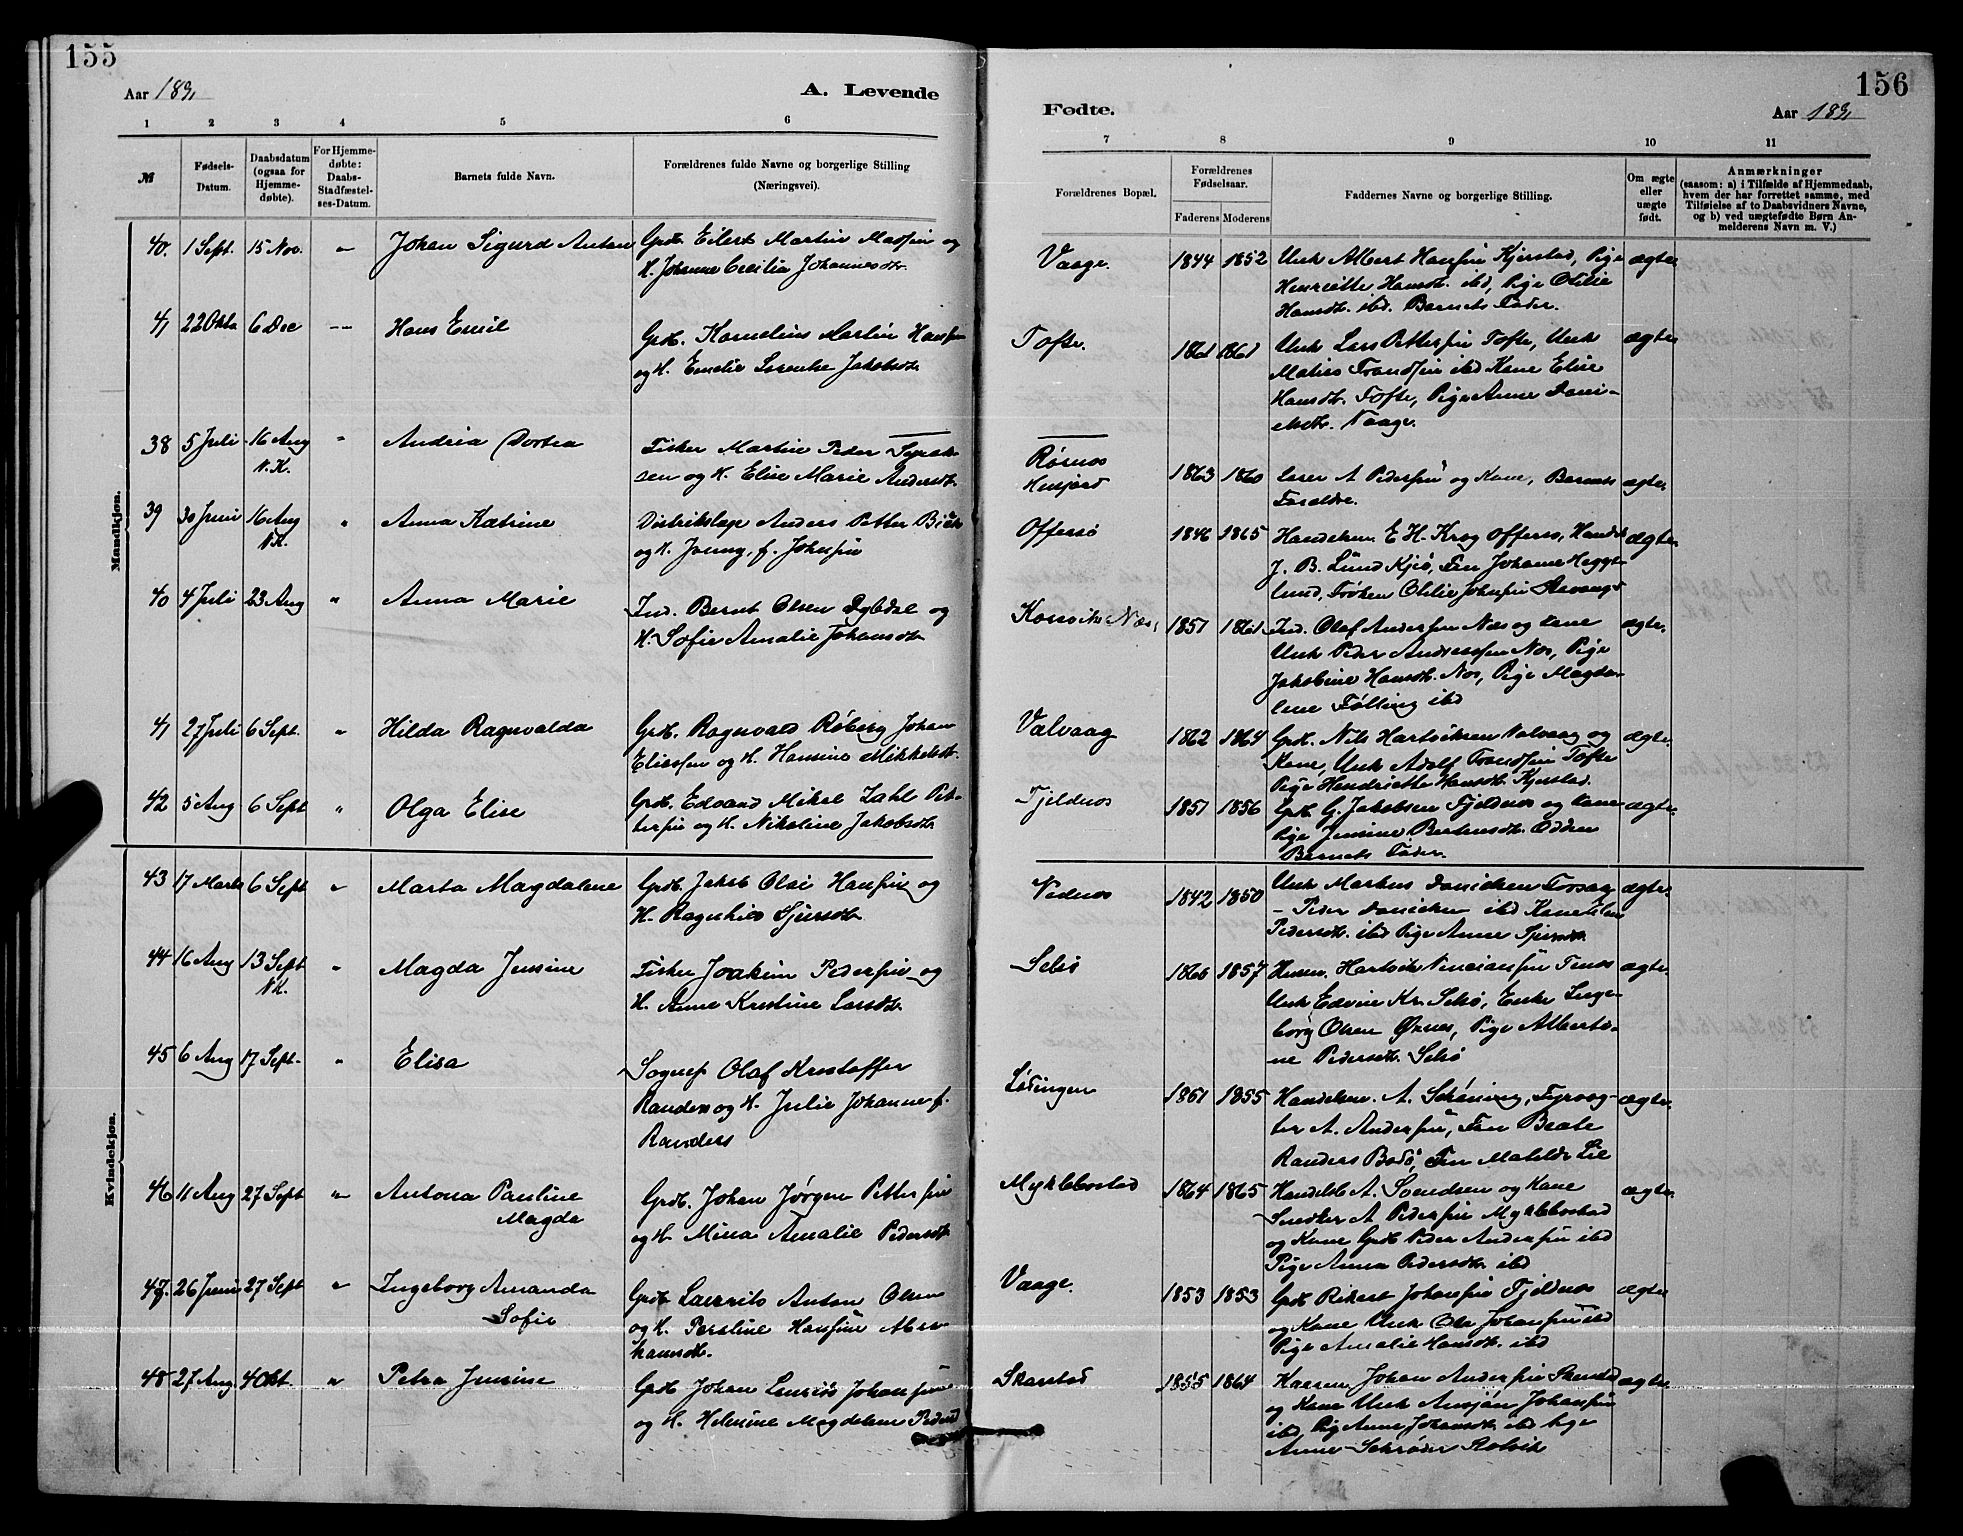 155
Aar 1891
A. Levende
1 2 3 4 5 6
№
Fødsels-Datum.
Daabsdatum (ogsaa for Hjemme-døbte).
For Hjemme-døbte: Daabs-Stadfæstel-ses-Datum.
Barnets fulde Navn.
Forældrenes fulde Navne og borgerlige Stilling
(Næringsvei).
Mandkjøn.
40. 1 Sept. 15 Nov. " Johan Sigurd Anton Grdb. Eilert Martin Madsen og
H. Johanne Cecilia Johannesdtr.
41 22 Okto 6 Dec -- Hans Emil Grdb. Kornelius Martin Hansen
og H. Emelie Lorentse Jakobsdtr.
38 5 Juli 16 Aug " Andrea Dortea Fisker Martin Peder Syrak-
N.K. sen og H. Elise Marie Andersdtr.
39 30 Juni 16 Aug " Anna Katrine Distriktslæge Anders Petter
N.K. og H. f. Johnsen
40 4 Juli 23 Aug " Anna Marie Ind. Bernt Olsen Dybdal og
H. Sofie Amalie Johansdtr.
41 27 Juli 6 Sept. " Hilda Ragnvalda Grdb. Ragnvald Røberg Johan
Eliassen og H. Hansine Mikkelsdtr.
42 5 Aug 6 Sept " Olga Elise Grdb. Edvard Mikal Zahl Pet-
tersen og H. Nikoline Jakobsdtr.
Kvindekjøn.
43 17 Marts 6 Sept " Marta Magdalene Grdb. Jakob Olai Hansen og
H. Ragnhild Sjursdtr.
44 16 Aug 13 Sept " Magda Jensine Fisker Joakim Pedersen og
N.K. H. Anne Kristine Larsdtr.
45 6 Aug 17 Sept. " Elisa Sognep Olaf Kristoffer
Randers og H. Julie Johanne f.
Randers
46 11 Aug 27 Sept " Antona Pauline Grdb. Johan Jørgen Pettersen
Magda og H. Mina Amalie Pedersdtr.
47. 26 Juni 27 Sept " Ingeborg Amanda Grdb. Laurits Anton Olsen
Sofie og H. Hansine Abra-
hamsdtr.
48 27 Aug 4 Okt. " Petra Jensine Grdb. Johan Johansen
og H. Helmine Magdalena Pedersd
156
Fødte.
Aar 1891
7 8 9 10 11
Forældrenes Bopæl.
Forældrenes Fødselsaar.
Faderens Moderens
Faddernes Navne og borgerlige Stilling.
Om ægte eller uægte født.
Anmærkninger
(saasom: a) i Tilfælde af Hjemmedaab,
hvem der har forrettet samme, med
Tilføielse af to Daabsvidners Navne,
og b) ved uægtefødte Børn An-
melderens Navn m. V.)
Vaage. 1844 1852 Unk Albert Hansen Kjerstad, Pige ægte
Henriette Hansdtr. ibd, Pige Otilie
Hansdtr. ibd. Barnets Fader.
Tofte. 1861 1861 Unk Lars Pettersen Tofte, Unk ægte
Matias Trondsen ibd Kone Elise
Hansdtr. Tofte, Pige Anne Dani-
elsdtr. Vaage.
Røsnes
Husjord 1863 1860 Lærer A Pedersen og Kone, Barnets ægte.
Forældre.
Offersø 1846 1865 Handelsm. E H. Krog Offersø, Handels ægte.
J. B. Lund Kjø, Fru Johanne Hegge-
lund, Frøken Otilie Johnsen
Næs, 1851 1861 Ind. Olaf Andersen Næs og Kone ægte.
Unk Peder Anderssen Næs, Pige
Jakobine Hansdtr. Næs, Pige Magda-
lene Følling ibd
Valvaag 1862 1864 Grdb. Nils Hartviksen Valvaag og ægte.
Kone, Unk Adolf Trondsen Tofte
Pige Hendriette Hansdtr. Kjerstad.
Fjeldnes 1851 1856 Grdb G. Jakobsen Fjeldnes og Kone ægte.
Pige Jensine Bertensdtr. Odden
Barnets Fader.
Vednes 1842 1850 Unk Markus Danielsen Forsaa ægte.
- Peder Danielsen ibd Kone
Pedersdtr. ibd Pige Anne Sjursdtr.
Selsø 1860 1857 Husm. Hartvik ægte.
Unk Edvin Kr. Selsø, Enke Inge-
borg Olsen Øxnes, Pige Alberti-
ne Pedersdtr. Selsø
Lødingen 1861 1855 Handelsm. A. Schøning, Fyrvog- ægte.
ter A. Andersen, Fru Beate
Randers Bodø, Fru Matilde Lie
Myklebostad 1864 1865 Handelsb A. Svendsen og Kone ægte.
Snedker A Pedersen Myklebostad
og Kone Grdb Peder Andersen ibd
Pige Anna Pedersdtr. ibd
Vaage. 1853 1853 Grdb Rikert Johansen Fjeldnes ægte
og Kone Unk Ole Johansen ibd
Pige Amalie Hansdtr. ibd
Skarstad 1855 1864 Johan Andersen Skarstad ægte.
og Kone Unk Johansen
ibd, Pig Anne Johansdtr. ibd Pige
Anne Schrøder Rotvik